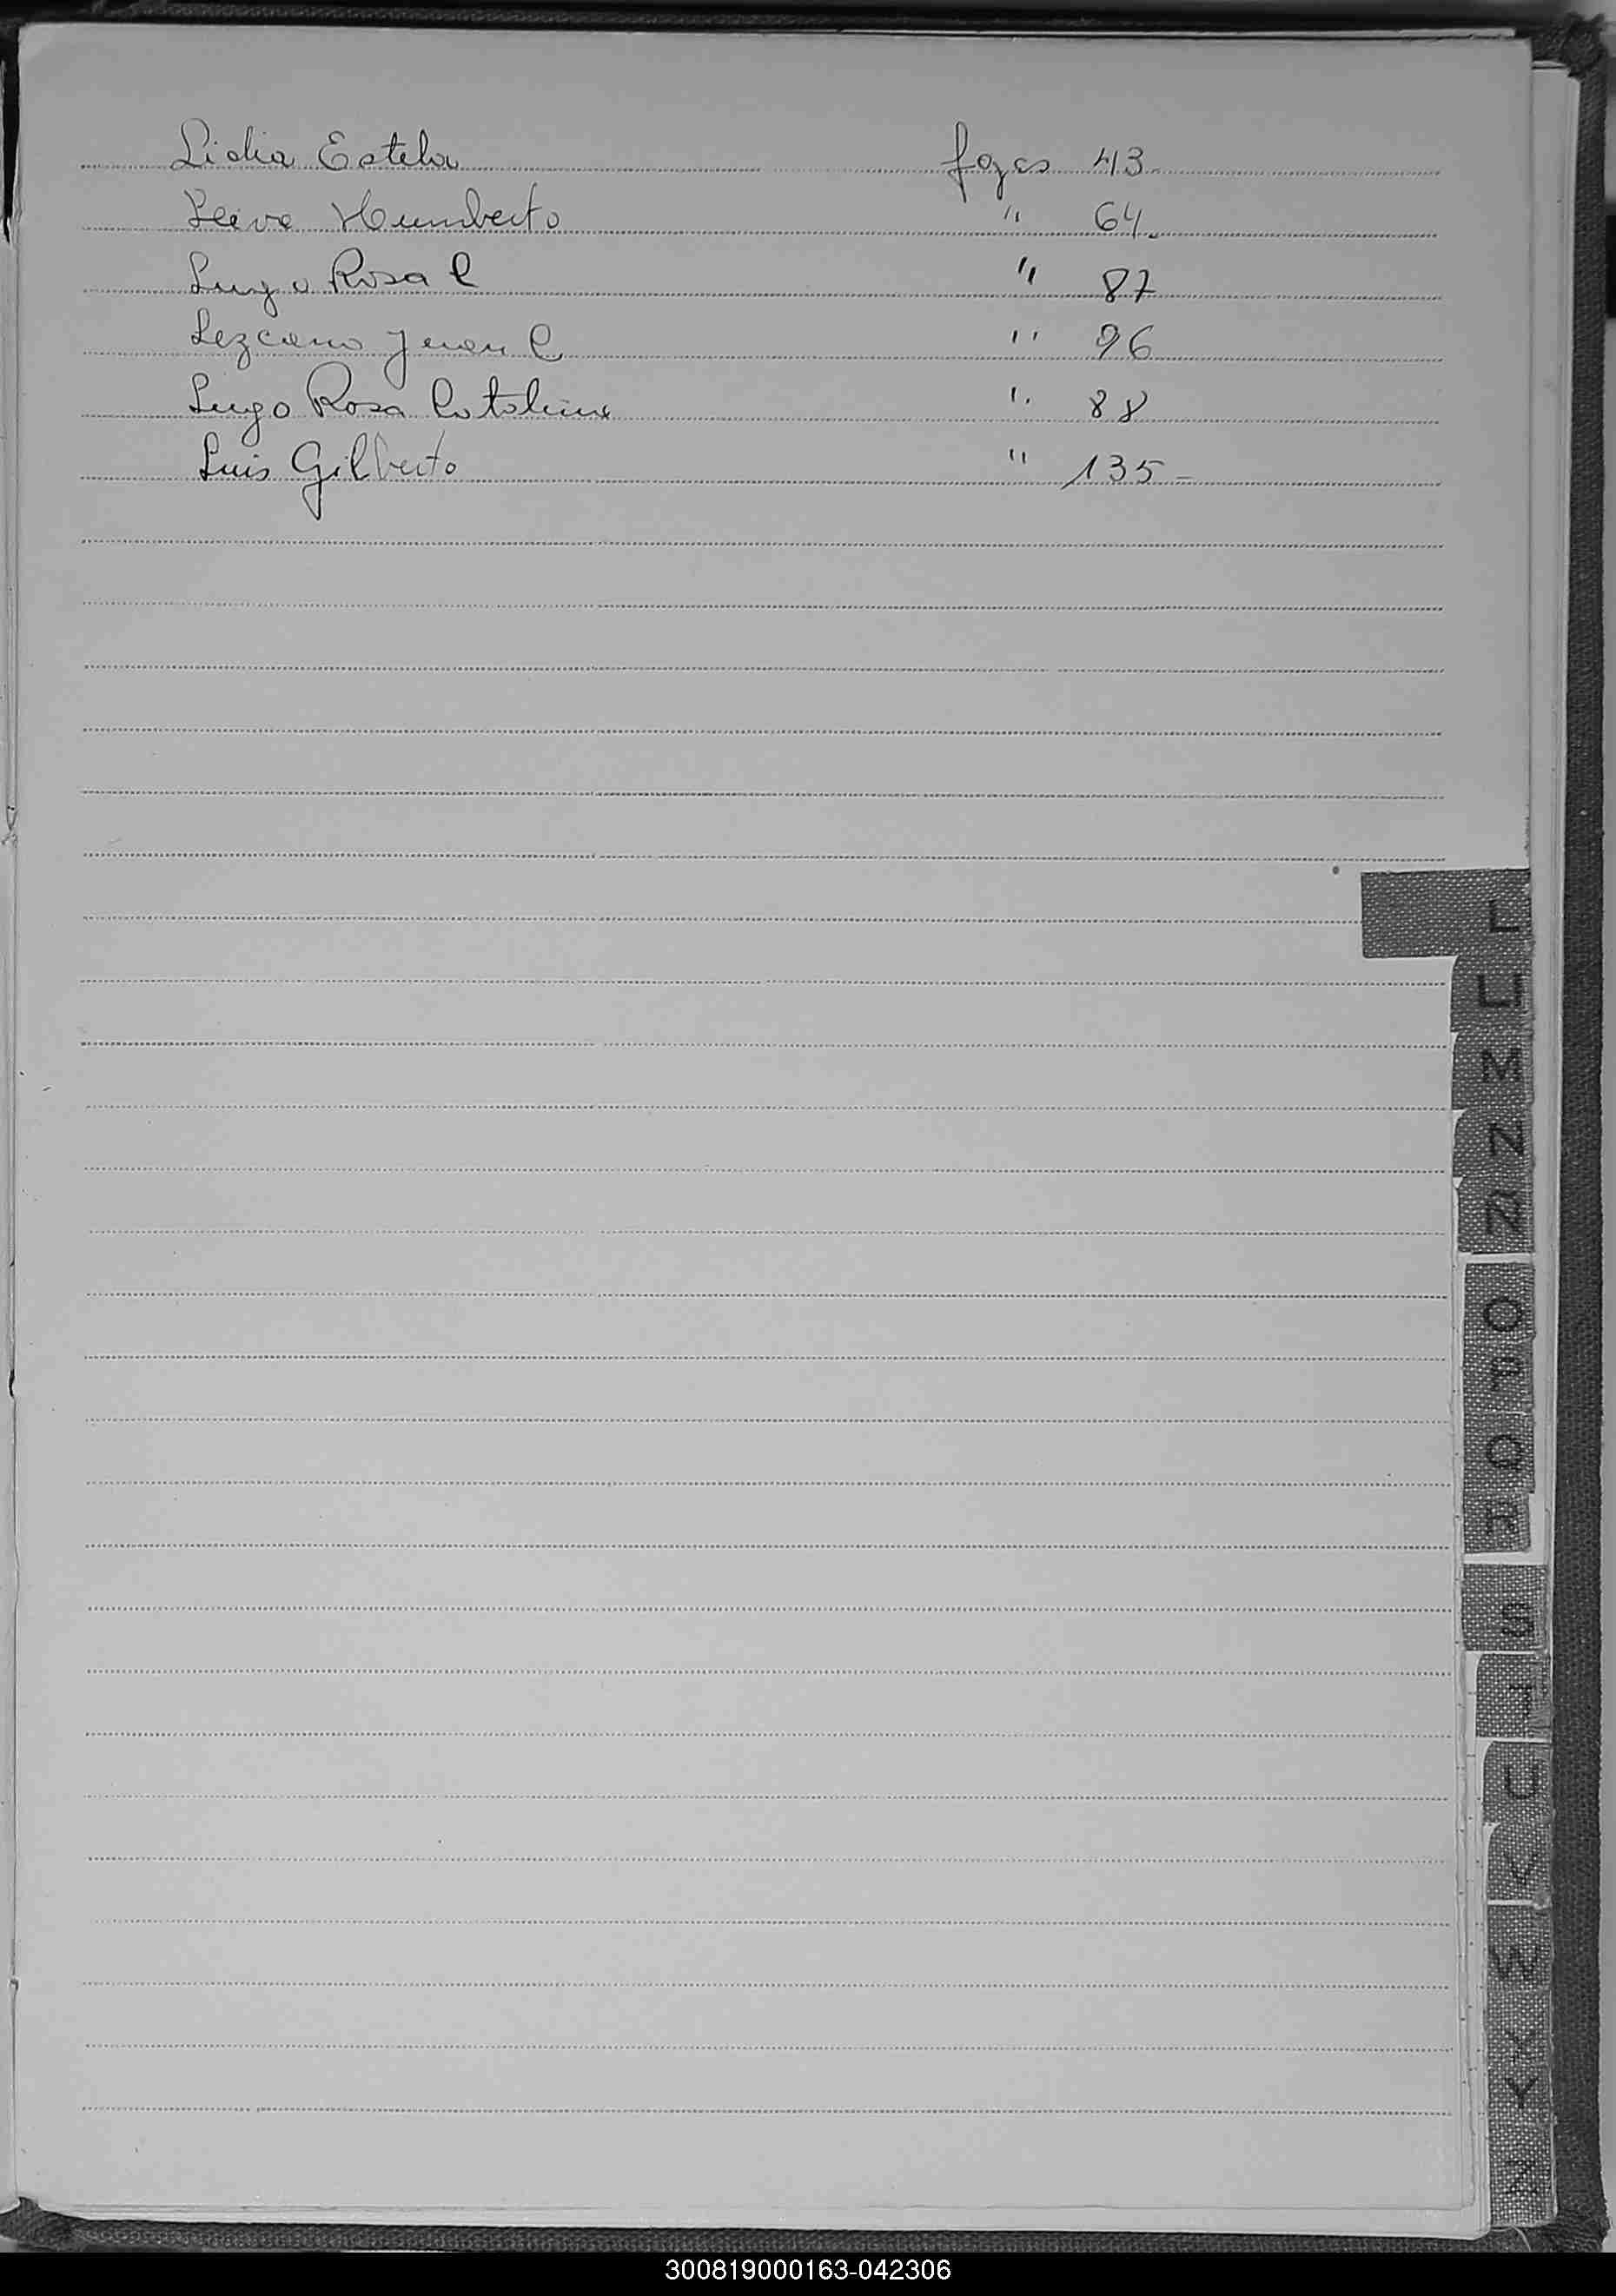 Lidia Estela fojas 43.
Leiva Humberto " 64.
Lugo Rosa C " 87
Lezcano Juan C " 96
Lugo Rosa Catalina " 88
Luis Gilberto " 135-
L
LL
M
N
Ñ
O
P
Q
R
S
T
U
V
W
X
Y
Z
300819000163-042306